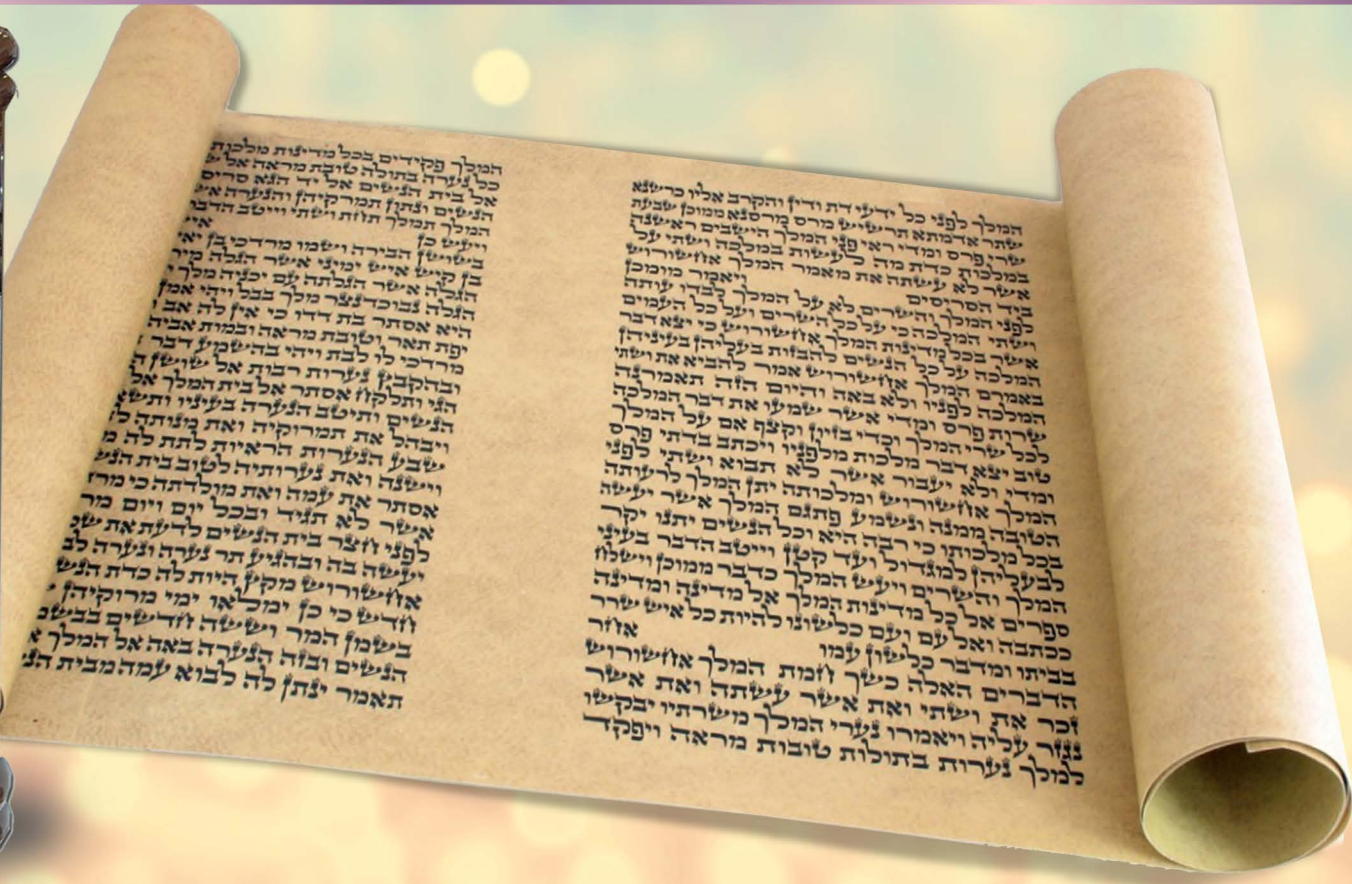 המלך לפני כל ידעי דת ודין והקרב אליו כרשנא
שתר אדמתא תרשיש מרס מרסנא ממוכן שבעת
שרי פרס ומדי ראי פני המלך הישבים ראישנה
במלכות כדת מה לעשות במלכה ושתי על
אשר לא עשתה את מאמר המלך אחשורוש
ביד הסריסים ויאמר מומכן
לפני המלך והשרים לא על המלך לבדו עותה
ושתי המלכה כי על כל השרים ועל כל העמים
אשר בכל מדינות המלך אחשורוש כי יצא דבר
המלכה על כל הנשים להבזות בעליהן בעיניהן
באמרם המלך אחשורוש אמר להביא את ושתי
המלכה לפניו ולא באה והיום הזה תאמרנה
שרות פרס ומדי אשר שמעו את דבר המלכה
לכל שרי המלך וכדי בזיון וקצף אם על המלך
טוב יצא דבר מלכות מלפניו ויכתב בדתי פרס
ומדי ולא יעבור אשר לא תבוא ושתי לפני
המלך אחשורוש ומלכותה יתן המלך לרעותה
הטובה ממנה ונשמע פתגם המלך אשר יעשה
בכל מלכותו כי רבה היא וכל הנשים יתנו יקר
לבעליהן למגדול ועד קטן וייטב הדבר בעיני
המלך והשרים ויעש המלך כדבר ממוכן וישלח
ספרים אל כל מדינות המלך אל מדינה ומדינה
ככתבה ואל עם ועם כלשונו להיות כל איש שרר
בביתו ומדבר כלשון עמו אחר
הדברים האלה כשך חמת המלך אחשורוש
זכר את ושתי ואת אשר עשתה ואת אשר
נגזר עליה ויאמרו נערי המלך משרתיו יבקשו
למלך נערות בתולות טובות מראה ויפקד
המלך פקידים בכל מדינות מלכות
כל נערה בתולה טובת מראה אל ש
אל בית הנשים אל יד הגא סריס
הנשים ונתון תמרקיהן והנערה א
המלך תמלך תחת ושתי וייטב הדבר
ויעש כן אי
בשושן הבירה ושמו מרדכי בן יאי
בן קיש איש ימיני אשר הגלה מיר
הגלה אשר הגלתה עם יכניה מלך י
הגלה נבוכדנצר מלך בבל ויהי אמן
היא אסתר בת דדו כי אין לה אב ו
יפת תאר וטובת מראה ובמות אביה
מרדכי לו לבת ויהי בהשמע דבר
ובהקבץ נערות רבות אל שושן ה
הגי ותלקח אסתר אל בית המלך אל
הנשים ותיטב הנערה בעיניו ותשא
ויבהל את תמרוקיה ואת מנותה ל
שבע הנערות הראיות לתת לה מ
וישנה ואת נערותיה לטוב בית הנש
אסתר את עמה ואת מולדתה כי מרד
אשר לא תגיד ובכל יום ויום מר
לפני חצר בית הנשים לדעת את של
יעשה בה ובהגיע תר נערה ונערה לב
אחשורוש מקץ היות לה כדת הנש
חדש כי כן ימלאו ימי מרוקיהן
בשמן המר וששה חדשים בבשמ
הנשים ובזה הנערה באה אל המלך א
תאמר ינתן לה לבוא עמה מבית הנ